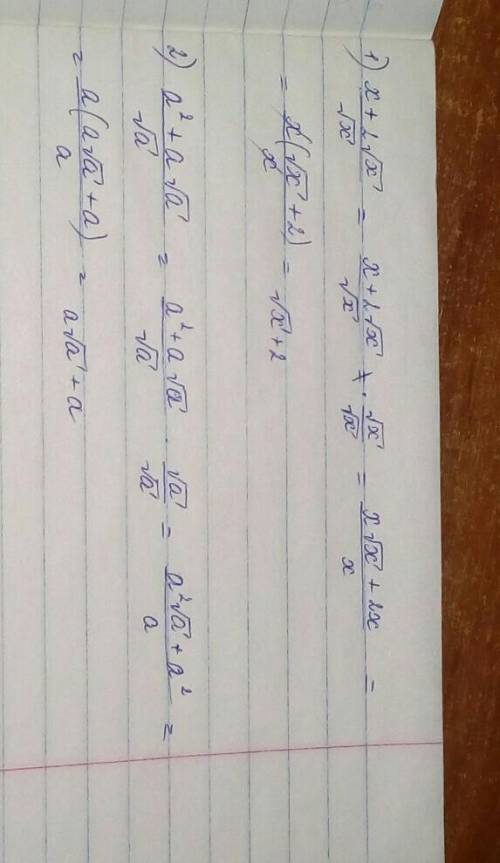 1) x + 2√x / √x = x + 2√x / √x · √x / √x = x√x + 2x / x =
= x(√x + 2) / x = √x + 2
2) a² + a√a / √a = a² + a√a / √a · √a / √a = a²√a + a² / a =
= a(a√a + a) / a = a√a + a